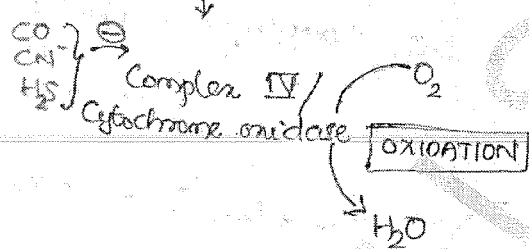 CO
CN⁻ ⊖
H₂S
Complex IV/
Cytochrome oxidase
O₂
OXIDATION
H₂O